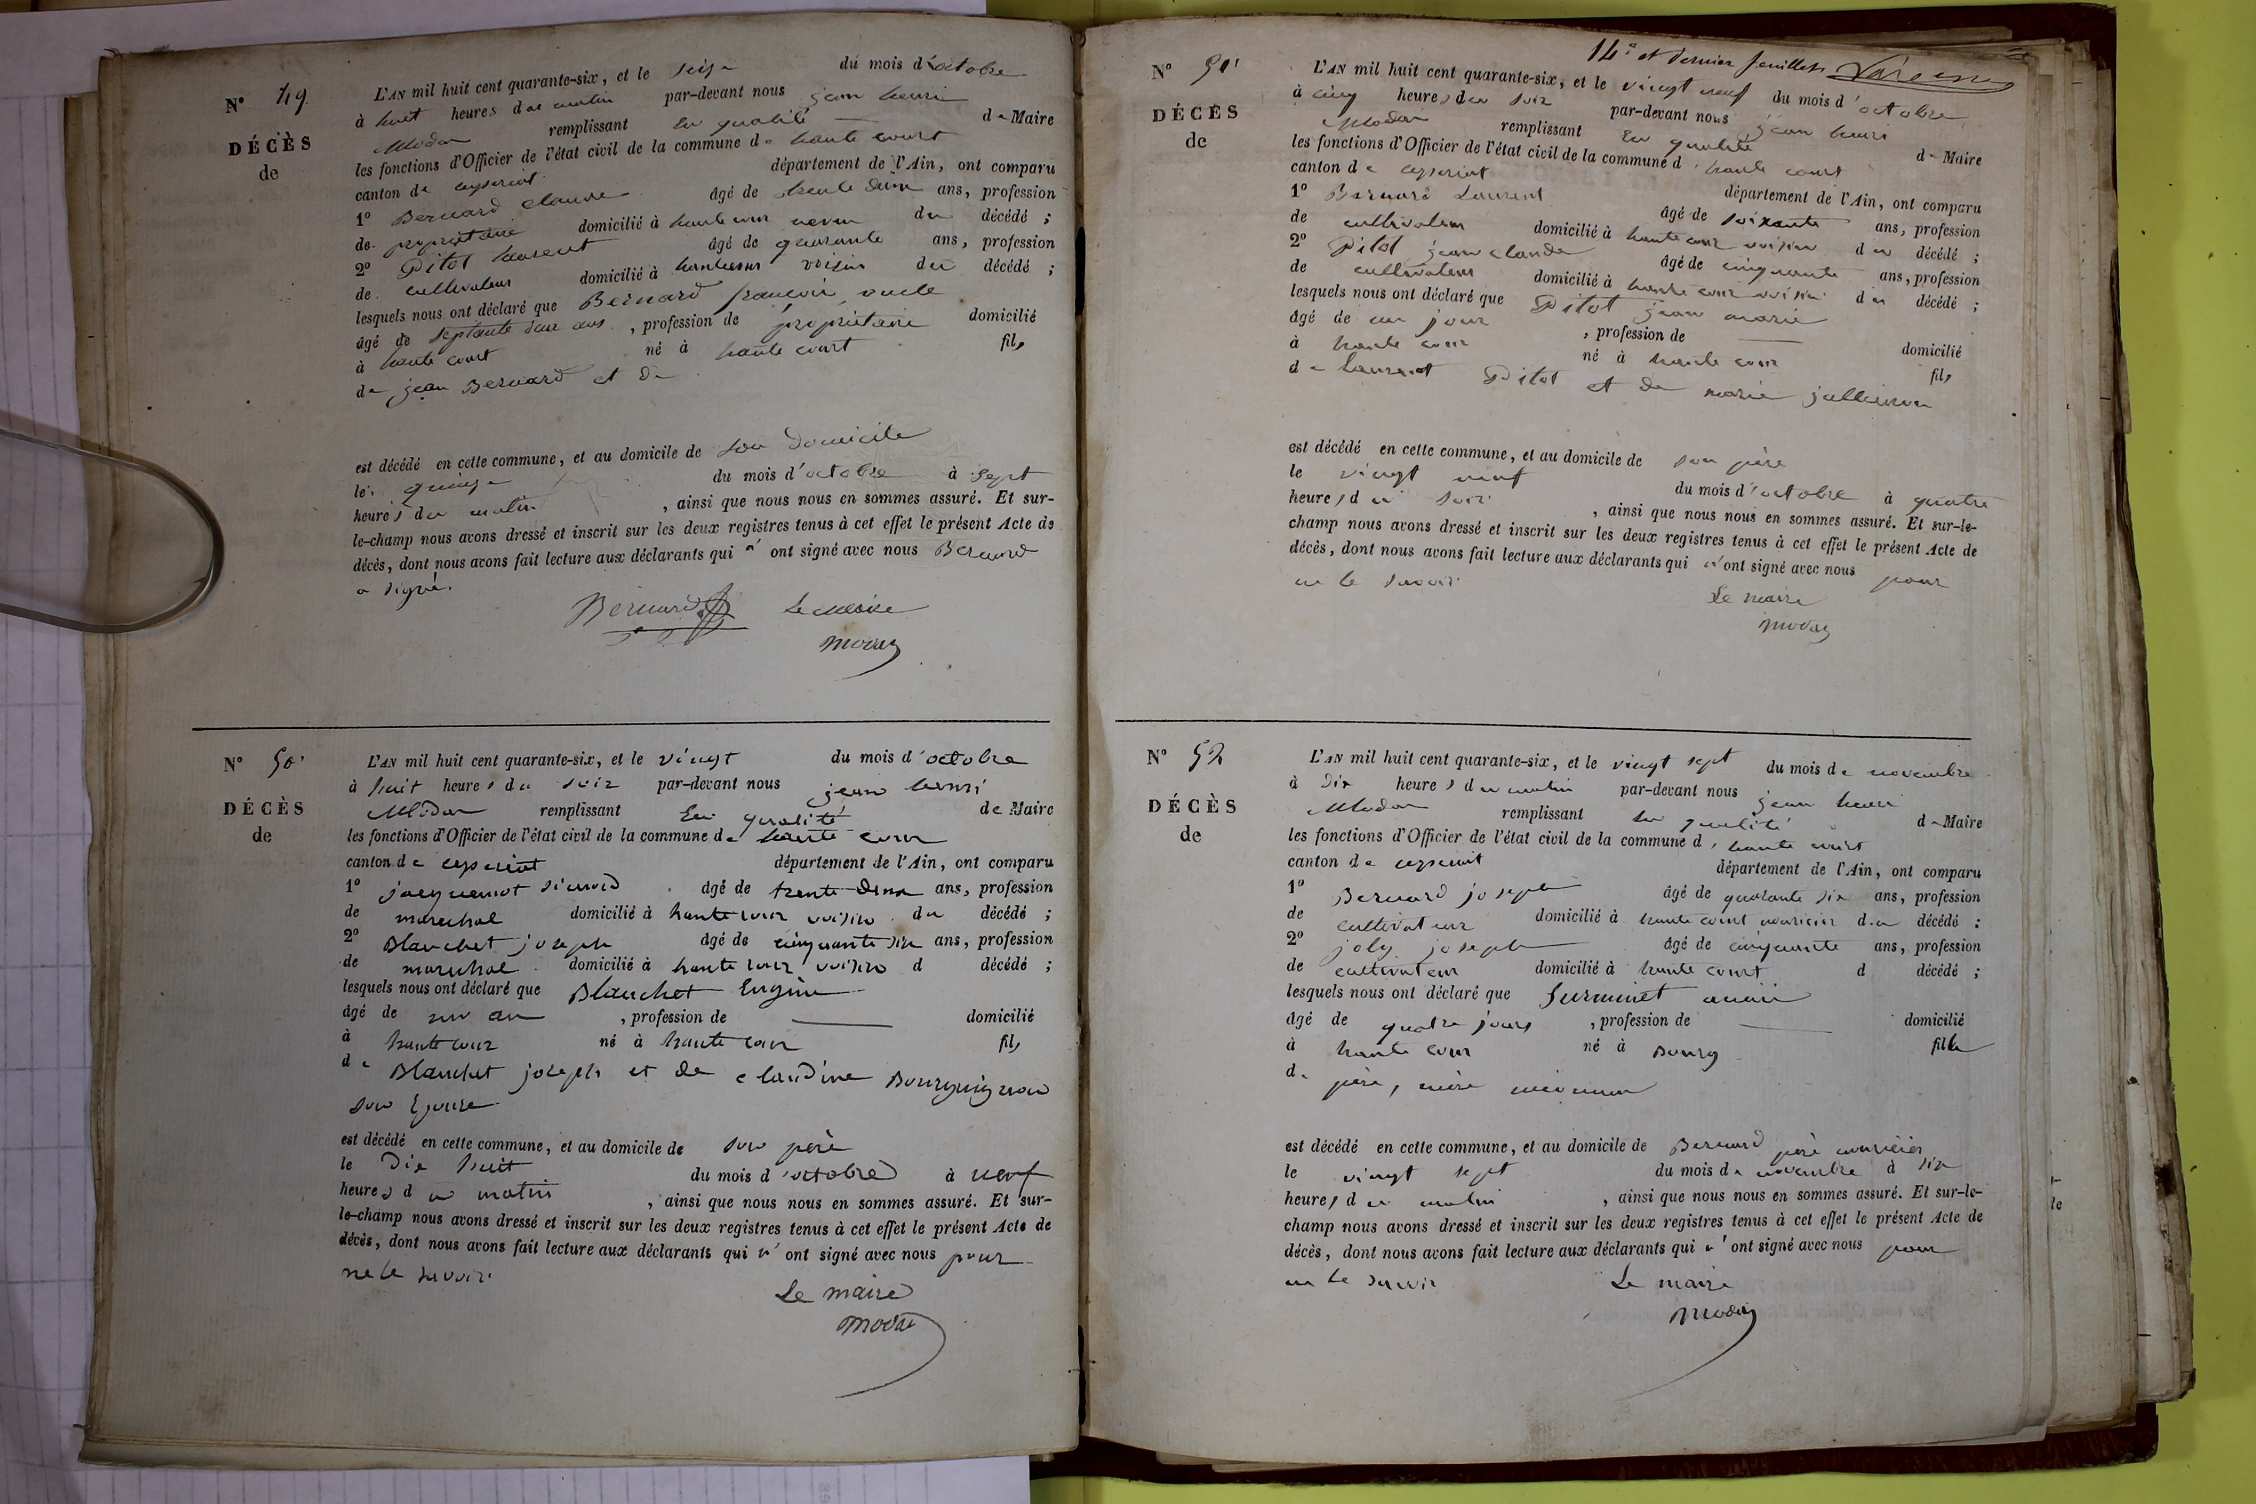 N° 49
DÉCÈS
de
L'AN mil huit cent quarante-six, et le seize du mois d'octobre
à huit heures du matin par-devant nous jean henri
Modas remplissant en qualité de Maire
les fonctions d'Officier de l'état civil de la commune de haute court
canton de ceyseriat département de l'Ain, ont comparu
1° Bernard claude âgé de trente deux ans, profession
de propriétaire domicilié à hautecour neveu du décédé ;
2° Pitot laurent âgé de quarante ans, profession
de cultivateur domicilié à hautecour voisin du décédé ;
lesquels nous ont déclaré que Bernard francois, oncle
âgé de septante deux ans, profession de propriétaire domicilié
à haute court né à haute court fils
de jean Bernard et de
est décédé en cette commune, et au domicile de son domicile
le quinze du mois d'octobre à sept
heures du matin, ainsi que nous nous en sommes assuré. Et sur-
le-champ nous avons dressé et inscrit sur les deux registres tenus à cet effet le présent Acte de
décès, dont nous avons fait lecture aux déclarants qui n'ont signé avec nous Bernard
a signé.
Bernard Le Maire
N° 50
DÉCÈS
de
L'AN mil huit cent quarante-six, et le vingt du mois d'octobre
à huit heures du soir par-devant nous jean henri
Modas remplissant en qualité de Maire
les fonctions d'Officier de l'état civil de la commune de haute cour
canton de ceyseriat département de l'Ain, ont comparu
1° jacquemot âgé de trente deux ans, profession
de marechal domicilié à hautecour voisin du décédé ;
2° Blanchet joseph âgé de cinquante six ans, profession
de marechal domicilié à haute cour voisin d décédé ;
lesquels nous ont déclaré que Blanchet Eugine
âgé de un an, profession de domicilié
à haute cour né à haute cour fils
de Blanchet joseph et de claudine Bourguignon
son Epouse
est décédé en cette commune, et au domicile de son père
le dix huit du mois d'octobre à neuf
heures du matin, ainsi que nous nous en sommes assuré. Et sur-
le-champ nous avons dressé et inscrit sur les deux registres tenus à cet effet le présent Acte de
décès, dont nous avons fait lecture aux déclarants qui n'ont signé avec nous pour
ne le savoir.
Le maire
14e et dernier feuillet
N° 51
DÉCÈS
de
L'AN mil huit cent quarante-six, et le vingt neuf du mois d'octobre
à cinq heures du soir par-devant nous jean henri
Modas remplissant en qualité de Maire
les fonctions d'Officier de l'état civil de la commune d haute court
canton de ceyseriat département de l'Ain, ont comparu
1° Bernard Laurent âgé de soixante ans, profession
de cultivateur domicilié à hautecour voisin du décédé ;
2° Pitot jean claude âgé de cinquante ans, profession
de cultivateur domicilié à haute cour voisin du décédé ;
lesquels nous ont déclaré que Pitot jean marie
âgé de un jour, profession de domicilié
à haute cour né à haute cour fils
de Laurent Pitot et de marie
est décédé en cette commune, et au domicile de son père
le vingt neuf du mois d'octobre à quatre
heures du soir, ainsi que nous nous en sommes assuré. Et sur-le-
champ nous avons dressé et inscrit sur les deux registres tenus à cet effet le présent Acte de
décès, dont nous avons fait lecture aux déclarants qui n'ont signé avec nous pour
ne le savoir.
Le maire
N° 52
DÉCÈS
de
L'AN mil huit cent quarante-six, et le vingt sept du mois de novembre
à dix heures du matin par-devant nous jean henri
Modas remplissant en qualité de Maire
les fonctions d'Officier de l'état civil de la commune d haute court
canton de ceyseriat département de l'Ain, ont comparu
1° Bernard joseph âgé de quarante six ans, profession
de cultivateur domicilié à haute court nouricier du décédé ;
2° joly joseph âgé de cinquante ans, profession
de cultivateur domicilié à haute court d décédé ;
lesquels nous ont déclaré que Surminet
âgé de quatre jours, profession de domicilié
à haute cour né à Bourg fille
de père, mère inconnu
est décédé en cette commune, et au domicile de Bernard père nouricier
le vingt sept du mois de novembre à six
heures du matin, ainsi que nous nous en sommes assuré. Et sur-le-
champ nous avons dressé et inscrit sur les deux registres tenus à cet effet le présent Acte de
décès, dont nous avons fait lecture aux déclarants qui n'ont signé avec nous pour
ne le savoir
Le maire